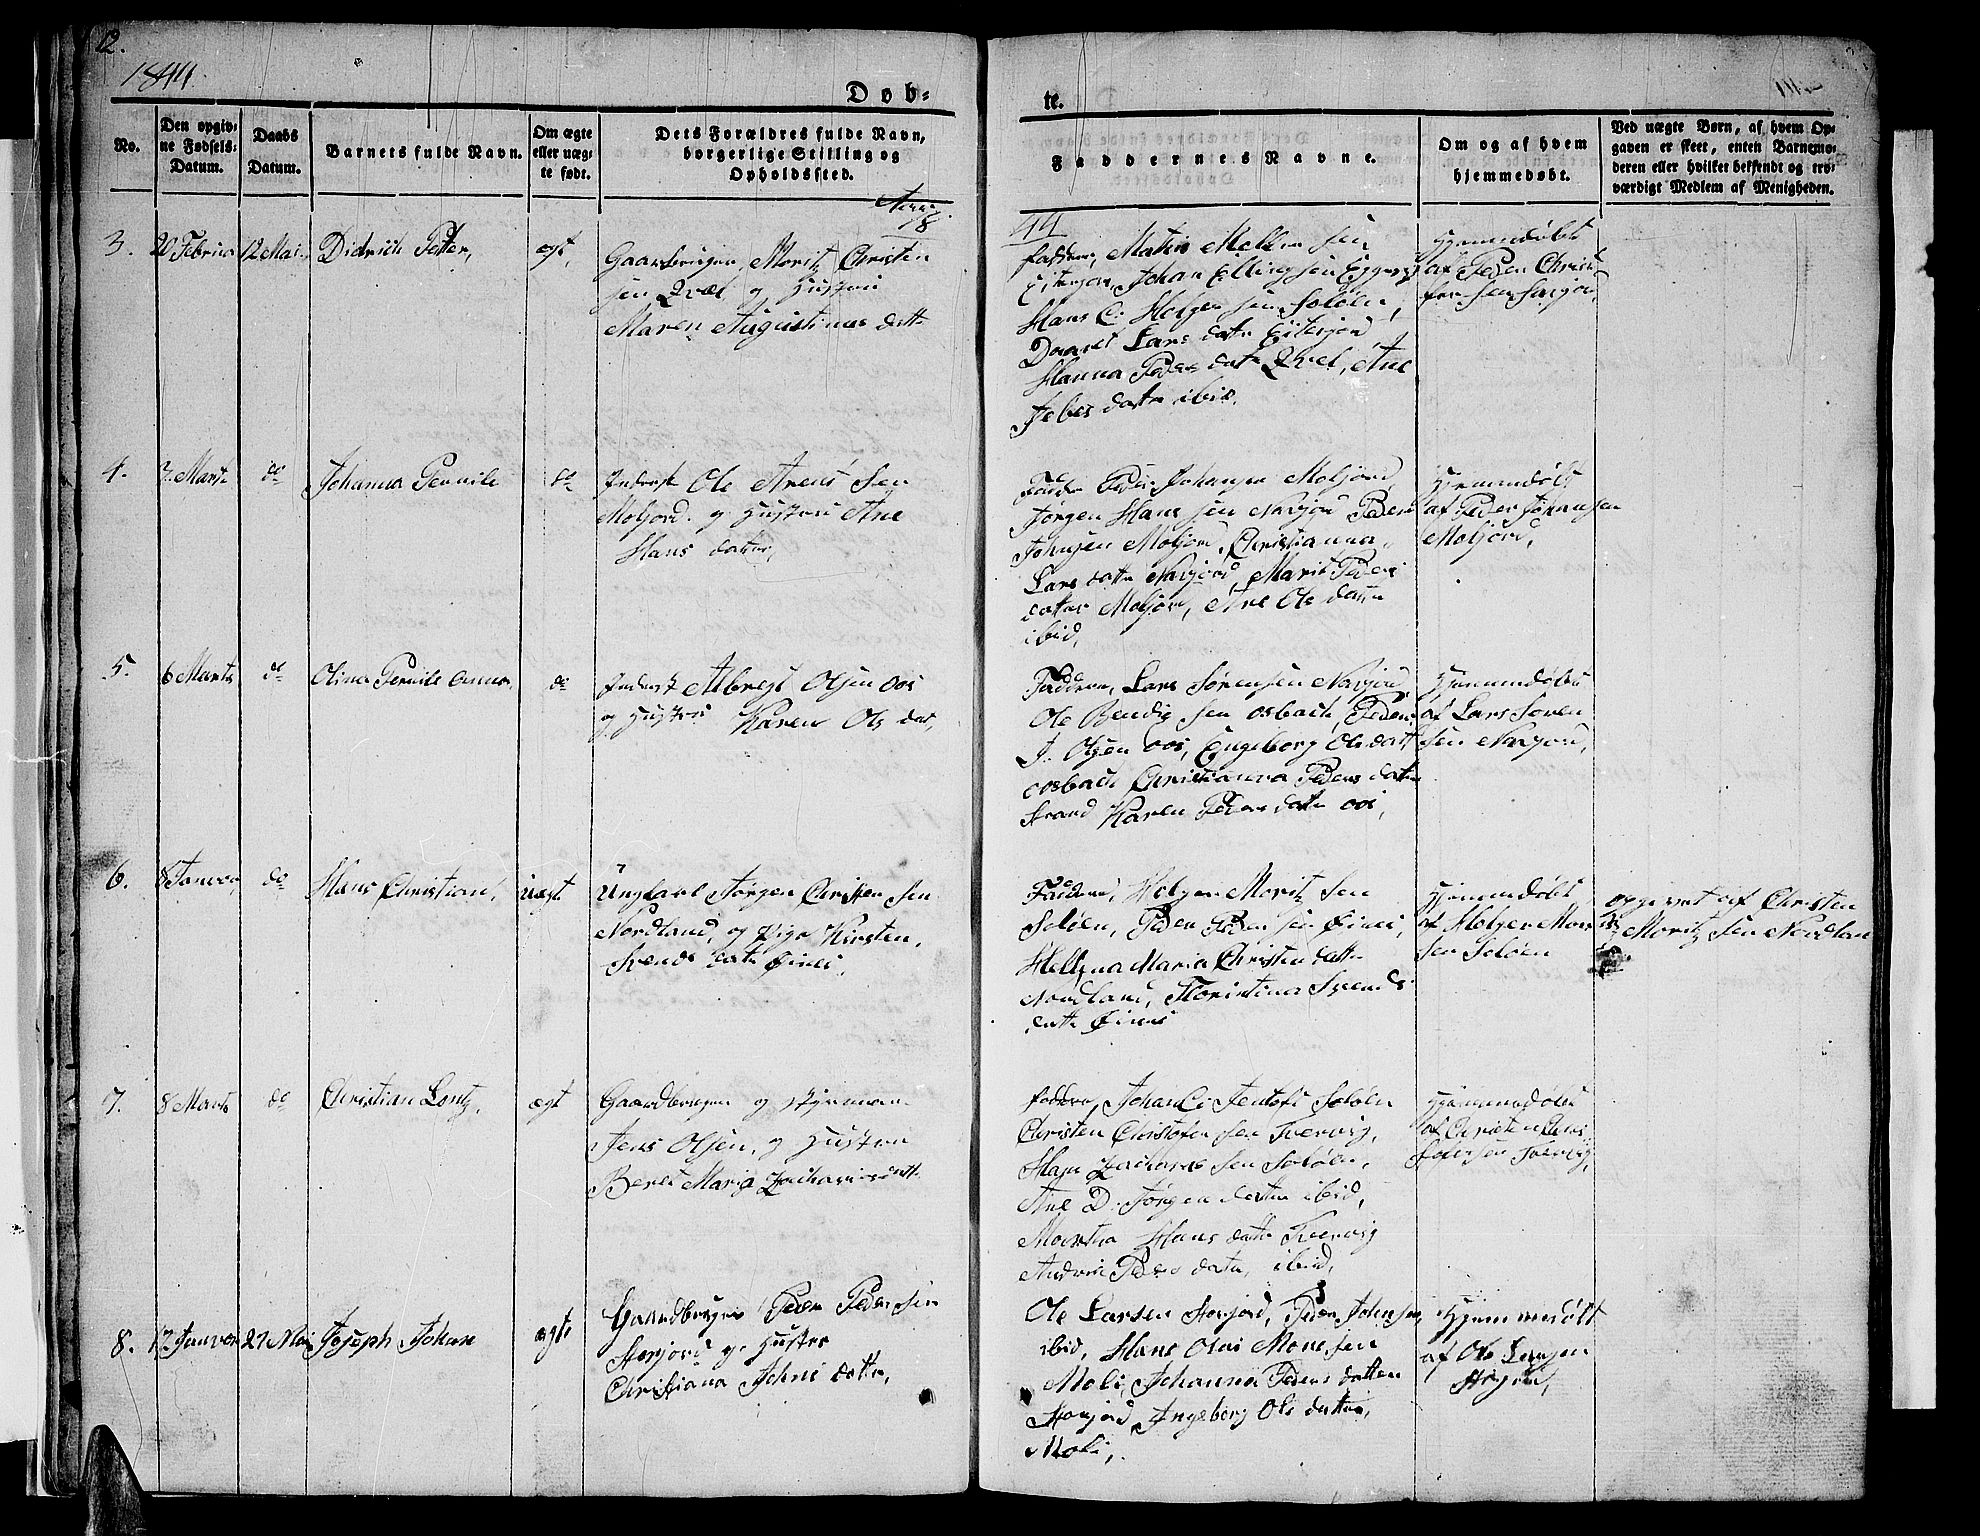 12.
1844.
Døb-
te.
No.
Den opgiv-
ne Fødsels-
Datum.
Daabs
Datum.
Barnets fulde Navn.
Om ægte
eller uæg-
te født.
Dets Forældres fulde Navn,
borgerlige Stilling og
Opholdssted.
Faddernes Navne.
Om og af hvem
hjemmedøbt.
Ved uægte Børn, af hvem Op-
gaven er skeet, enten Barnemo-
deren eller hvilket bekjendt og tro-
værdigt Medlem af Menigheden.
18
44
3. 20 Februar 12 Mai Didrich Petter, ægt,
Gaardbruger Moritz Christen
sen Qvæl og Hustru
Maren Augustinus datt
Hans C: Holger sen Soløen,
Daaret Lars datr
Hanna Peders datr Qvel, Ane
Jebes datr ibid.
Hjemmedøbt
af Peder Christ
4. 3 Marts do Johanna Pernile do
Inderst Ole Arens sen
Moljord og Hustru Ane
Hans datter,
Peder Johansen Moljord,
Jørgen Hans sen Peder
Johnsen Moljord, Christianna
Lars datr Marit Peders
datter Moljord, Ane Ole datter
ibid,
Hjemmedøbt
af Peder Johansen
Moljord,
5. 6 Marts do Olina Pernile Anna, do
Inderst Albregt Olsen oos
og Hustru Karen Ols dat,
Faddere, Lars Sørensen
Ole Bendig sen osbach, Peder
J. Olsen oos, Engeborg Ole datt
osbach Christianna Peders datr
Strand Karen Peders datr oos,
Hjemmedøbt
af Lars Soren
sen
6. 8 Januar, do Hans Christian, Uægt
Ungkarl Jørgen Christen sen
Nordland, og Pige Kirsten
Svends datr Øines,
Faddere, Holger Moritz sen
Soløen, Peder Peder sen Øines,
Hellena Maria Christen datt
Nordland, Floristina Svends
datt Øines
Hjemmedøbt
af Holger Moritz
sen Soløen
opgivet af Christen
Moritz sen Nordlan
7. 8 Marts do Christian Lontz, ægt
Gaardbruger og Styrman
Jens Olsen, og Hustru
Beret Maria Zacharias datt
Faddere, Johan C: Jentoft Soløen
Christen Christofer sen Tvervig,
Hans Zacharias sen Soløen,
Ane D. Jørgen datter ibid,
Martha Hans datt Tvervig
Peders datr, ibid,
Hjemmedøbt
af Christen Chris
tofersen Tvervig,
8. 17 Januar 27 Mai Joseph Johan ægte
Gaardbruger Peder Peder sen
Storjord og Hustru
Christiana Johns datter,
Ole Larsen Storjord, Peder Johnsen,
ibid, Hans Olai Mons sen
Moli, Johanna Peders datter
Storjord Ingeborg Ole datter,
Moli,
Hjemmedøbt
af Ole Larsen